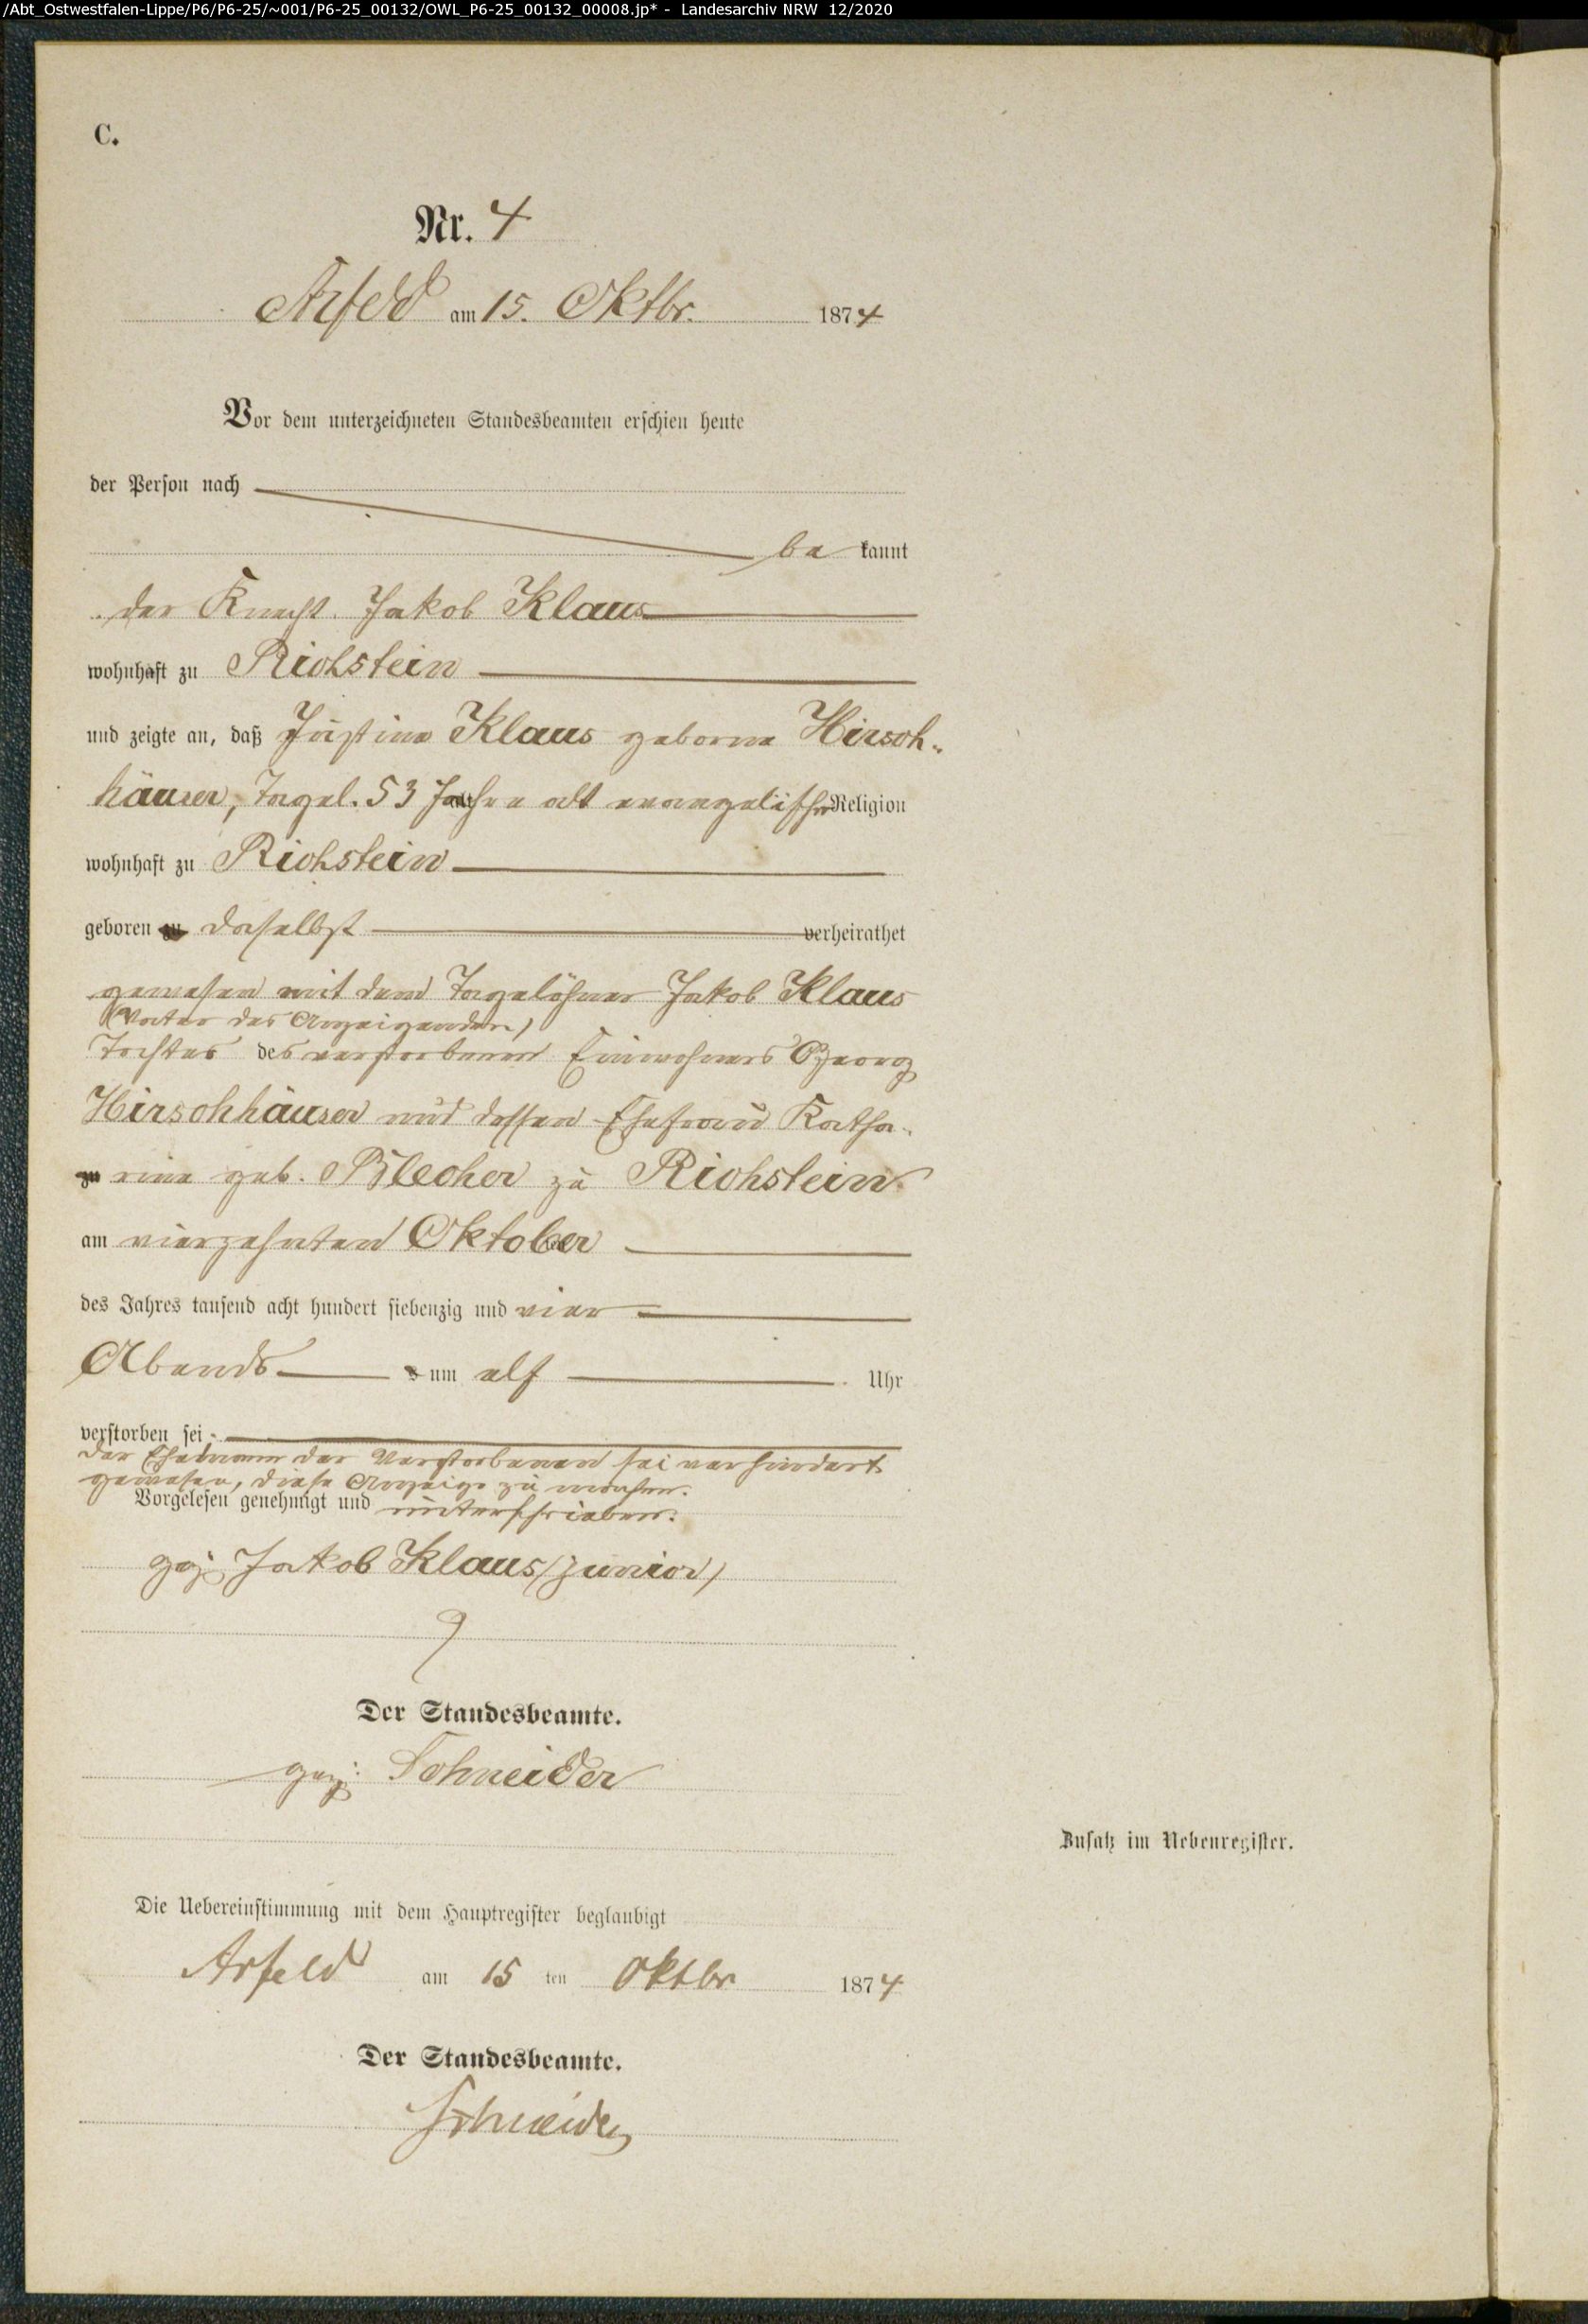 /Abt_Ostwestfalen-Lippe/P6/P6-25/~001/P6-25_00132/OWL_P6-25_00132_00008.jp* - Landesarchiv NRW 12/2020
C.
Nr. 4
Arfeld am 15. Oktbr. 1874
Vor dem unterzeichneten Standesbeamten erschien heute
der Person nach
be kannt
der Knecht Jakob Klaus
wohnhaft zu Richstein
und zeigte an, daß Justine Klaus geborne Hirsch-
häuser, Tagel. 53 Jahre alt evangelischer Religion
wohnhaft zu Richstein
geboren zu daselbst verheirathet
gewesen mit dem Tagelöhner Jakob Klaus
(Vater des Anzeigenden)
Tochter des verstorbenen Einwohners Georg
Hirschhäuser und dessen Ehefrau Katha-
zu rine geb. Blecher zu Richstein
am vierzehnten Oktober
des Jahres tausend acht hundert siebenzig und vier
Abends um elf Uhr
verstorben sei
der Ehemann der Verstorbenen sei verhindert
gewesen, diese Anzeige zu machen.
Vorgelesen genehmigt und unterschrieben.
gez. Jakob Klaus (junior)
Der Standesbeamte.
gez: Schneider
Zusatz im Nebenregister.
Die Uebereinstimmung mit dem Hauptregister beglaubigt
Arfeld am 15 ten Oktbr 1874
Der Standesbeamte.
Schneider